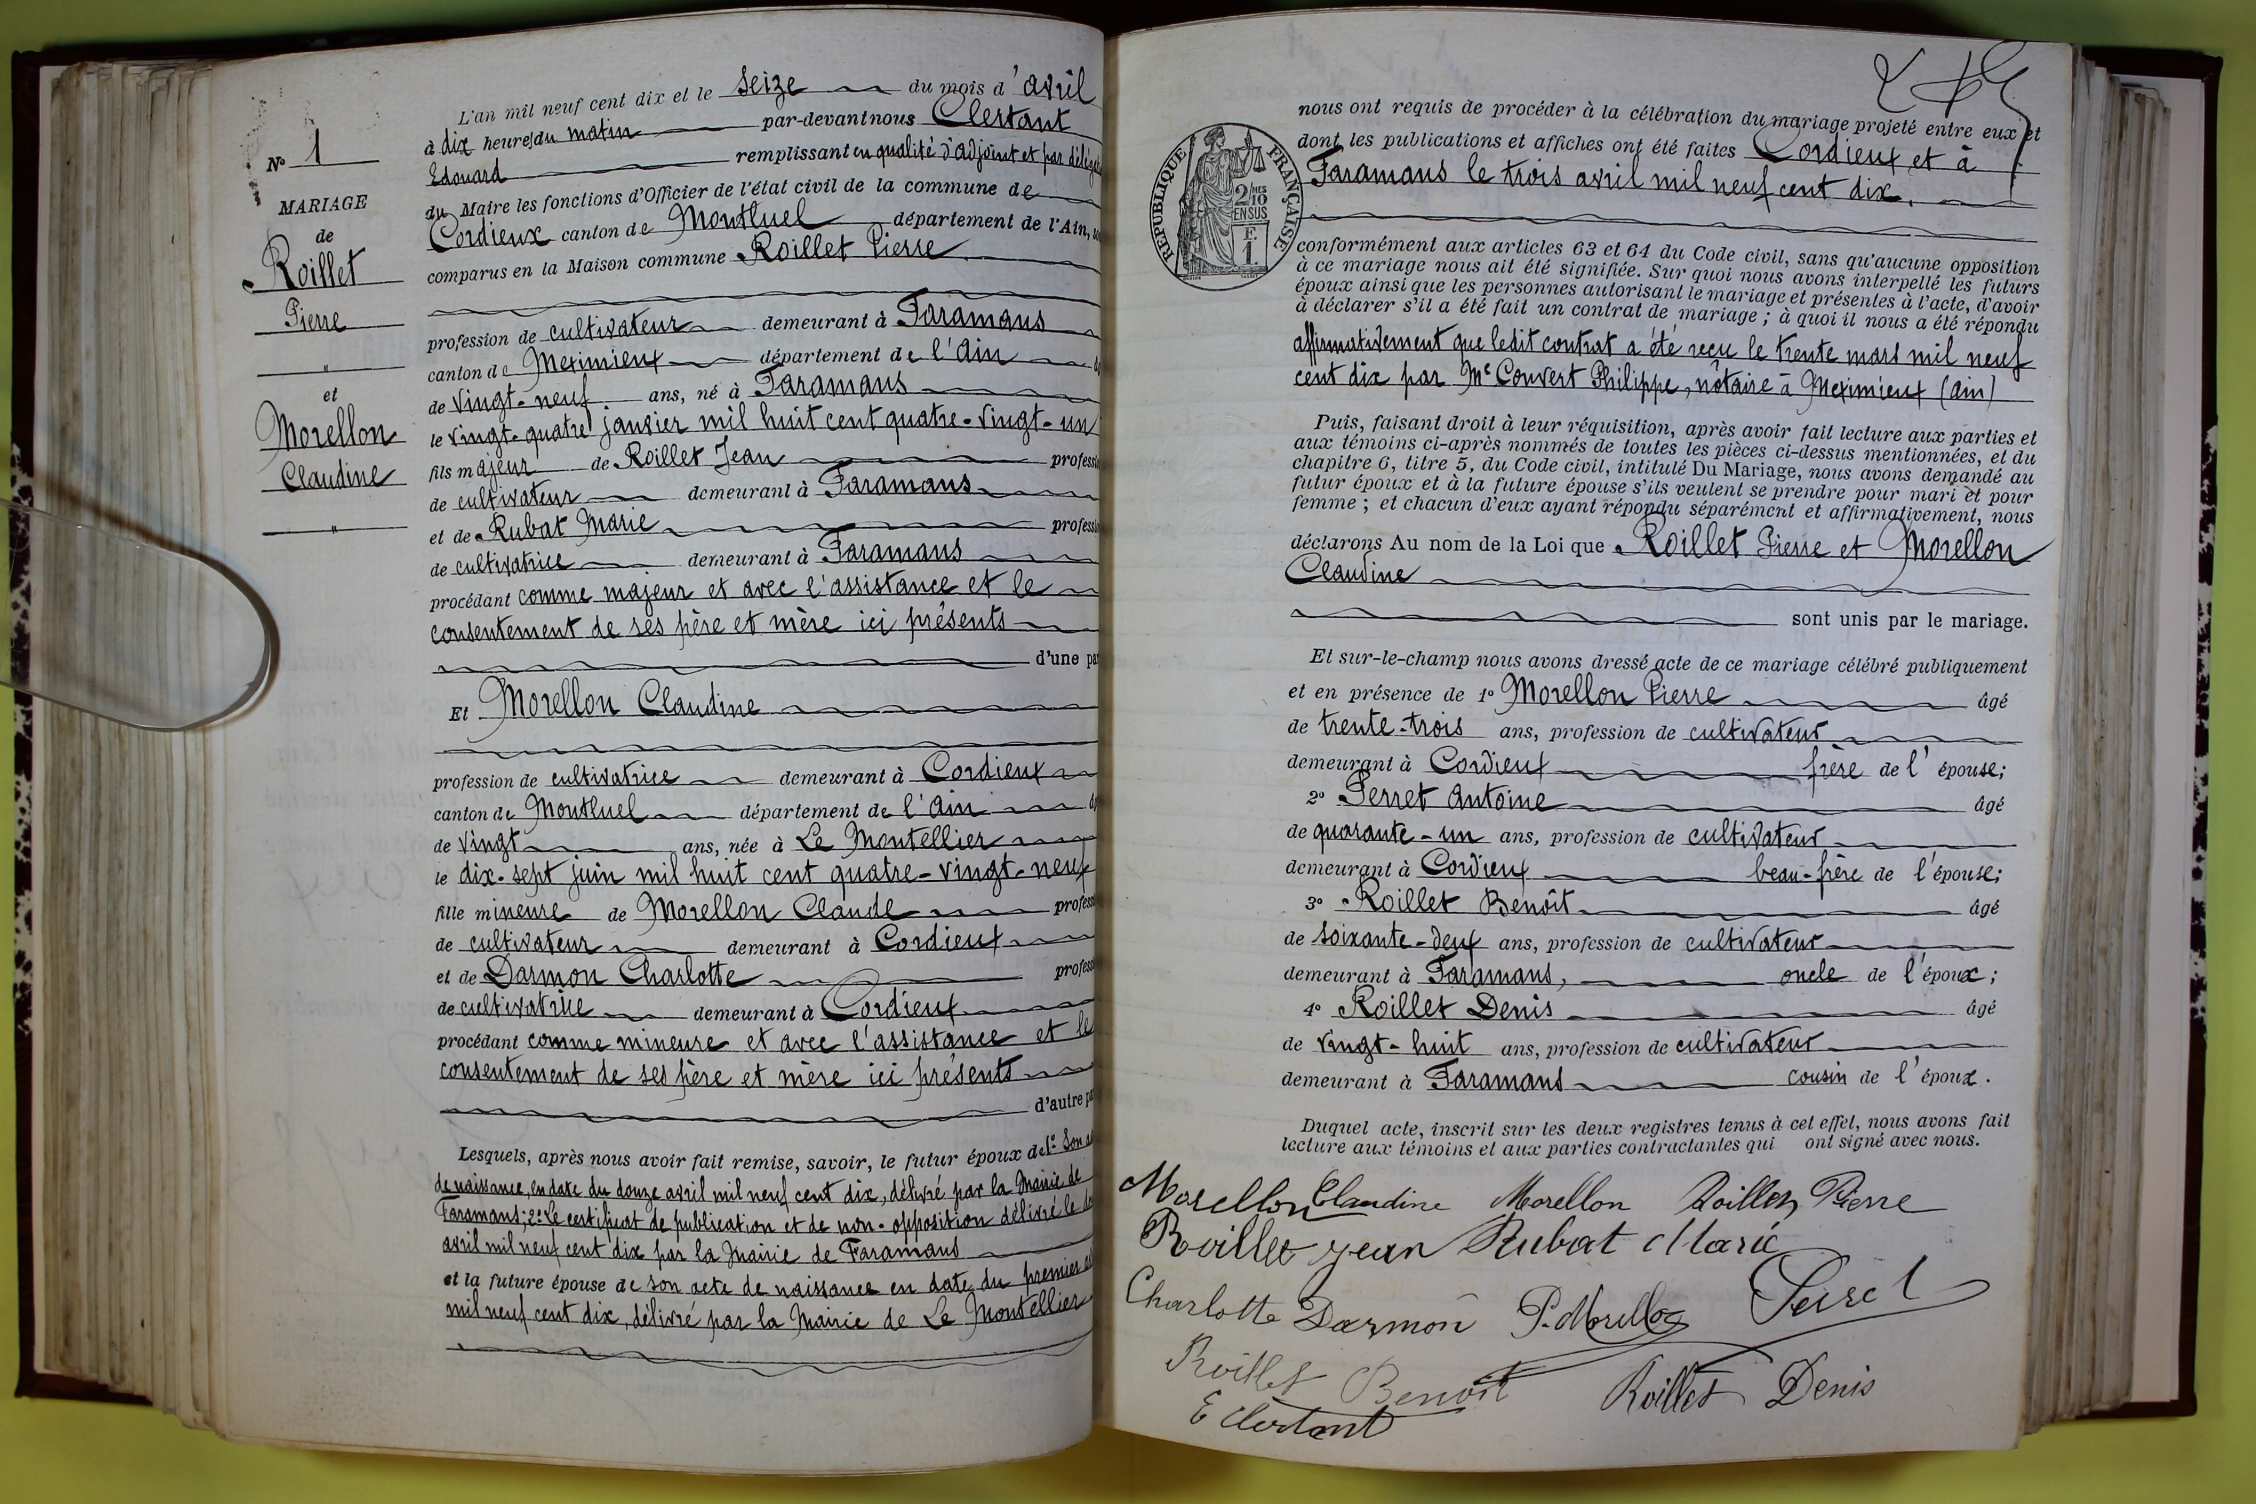 N° 1
MARIAGE
de
Roillet
Pierre
"
et
Morellon
Claudine
"
L'an mil neuf cent dix et le seize du mois d'avril
à dix heures du matin par-devant nous Clertant
Edouard remplissant en qualité d'adjoint et par
du Maire les fonctions d'Officier de l'état civil de la commune de
Cordieux canton de Montluel département de l'Ain,
comparus en la Maison commune Roillet Pierre
profession de cultivateur demeurant à Faramans
canton de Meximieux département de l'Ain
de vingt-neuf ans, né à Faramans
le vingt-quatre janvier mil huit cent quatre-vingt-un
fils majeur de Roillet Jean professi
de cultivateur demeurant à Faramans
et de Rubat Marie professi
de cultivatrice demeurant à Faramans
procédant comme majeur et avec l'assistance et le
consentement de ses père et mère ici présents
d'une pa
Et Morellon Claudine
profession de cultivatrice demeurant à Cordieux
canton de Montluel département de l'Ain
de vingt ans, née à Le Montellier
le dix-sept juin mil huit cent quatre-vingt-neuf
fille mineure de Morellon Claude profess
de cultivateur demeurant à Cordieux
et de Darmon Charlotte profess
de cultivatrice demeurant à Cordieux
procédant comme mineure et avec l'assistance et le
consentement de ses père et mère ici présents
d'autre pa
Lesquels, après nous avoir fait remise, savoir, le futur époux de 1° Son
de naissance, en date du douze avril mil neuf cent dix, délivré par la Mairie de
Faramans; 2° Le certificat de publication et de non-opposition délivré le
avril mil neuf cent dix par la Mairie de Faramans
et la future épouse de son acte de naissance en date du premier
mil neuf cent dix, délivré par la Mairie de Le Montellier
nous ont requis de procéder à la célébration du mariage projeté entre eux et
dont les publications et affiches ont été faites Cordieux et à
Faramans le trois avril mil neuf cent dix.
RÉPUBLIQUE FRANÇAISE
2/10 MES
EN SUS
F.
1.
conformément aux articles 63 et 64 du Code civil, sans qu'aucune opposition
à ce mariage nous ait été signifiée. Sur quoi nous avons interpellé les futurs
époux ainsi que les personnes autorisant le mariage et présentes à l'acte, d'avoir
à déclarer s'il a été fait un contrat de mariage; à quoi il nous a été répondu
affirmativement que ledit contrat a été reçu le trente mars mil neuf
cent dix par Mc Convert Philippe, nôtaire à Meximieux (Ain)
Puis, faisant droit à leur réquisition, après avoir fait lecture aux parties et
aux témoins ci-après nommés de toutes les pièces ci-dessus mentionnées, et du
chapitre 6, titre 5, du Code civil, intitulé Du Mariage, nous avons demandé au
futur époux et à la future épouse s'ils veulent se prendre pour mari et pour
femme; et chacun d'eux ayant répondu séparément et affirmativement, nous
déclarons Au nom de la Loi que Roillet Pierre et Morellon
Claudine
sont unis par le mariage.
Et sur-le-champ nous avons dressé acte de ce mariage célébré publiquement
et en présence de 1° Morellon Pierre âgé
de trente-trois ans, profession de cultivateur
demeurant à Cordieux frère de l'épouse;
2° Perret Antoine âgé
de quarante-un ans, profession de cultivateur
demeurant à Cordieux beau-frère de l'épouse;
3° Roillet Benoît âgé
de soixante-deux ans, profession de cultivateur
demeurant à Faramans, oncle de l'époux;
4° Roillet Denis âgé
de vingt-huit ans, profession de cultivateur
demeurant à Faramans cousin de l'époux.
Duquel acte, inscrit sur les deux registres tenus à cet effet, nous avons fait
lecture aux témoins et aux parties contractantes qui ont signé avec nous.
Morellon Claudine Morellon Roillet Pierre
Roillet jean Rubat Marie
Charlotte Darmon P. Morellon Perret
Roillet Benoit Roillet Denis
E Clertant